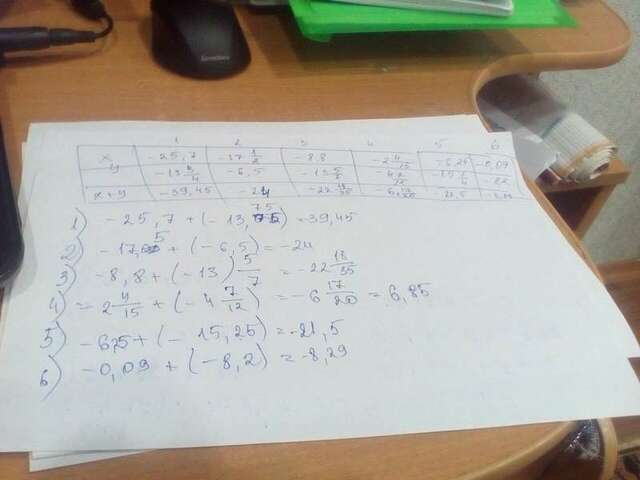 1 2 3 4 5 6
x -25,7 -17 1/2 -8,8 -2 4/15 -6,25 -0,09
y -6,5 -13 5/7
x+y -39,45 -24 -22 18/35 -6 17/20 -21,5
1) -25,7 + (-13,75) = 39,45
2) + (-6,5) = -24
3) -8,8 + (-13) 5/7 = -22 18/35
4) = 2 4/15 + (-4 7/12) = -6 17/20 = 6,85
5) + (-15,25) = -21,5
6) -0,09 + (-8,2) = -8,29